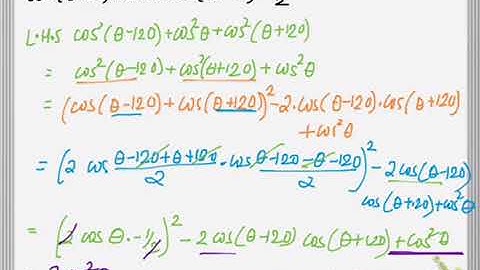 L.H.S cos²(θ-120)+cos²θ+cos²(θ+120)
= cos²(θ-120)+cos²(θ+120)+cos²θ
= (cos(θ-120)+cos(θ+120))²-2.cos(θ-120).cos(θ+120)
+cos²θ
= (2 cos θ-120+θ+120/2 .cos θ-120-θ-120/2)²-2cos(θ-120)
cos(θ+120)+cos²θ
= (2 cosθ.-1/2)²-2cos(θ-120) cos(θ+120)+cos²θ